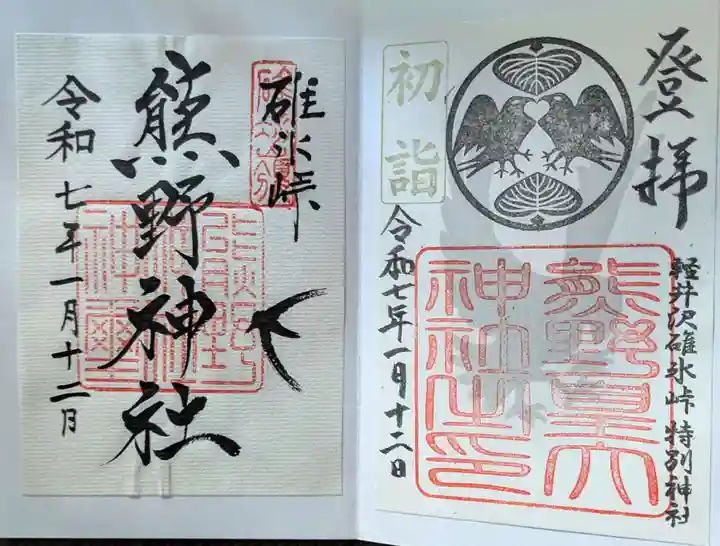 登拝
初詣
軽井沢碓氷峠特別神社
熊野皇大
神社之印
令和七年一月十二日
碓氷峠
熊野神社
令和七年一月十二日